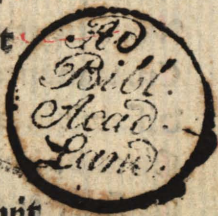 Ad
Bibl.
Acad.
Land.